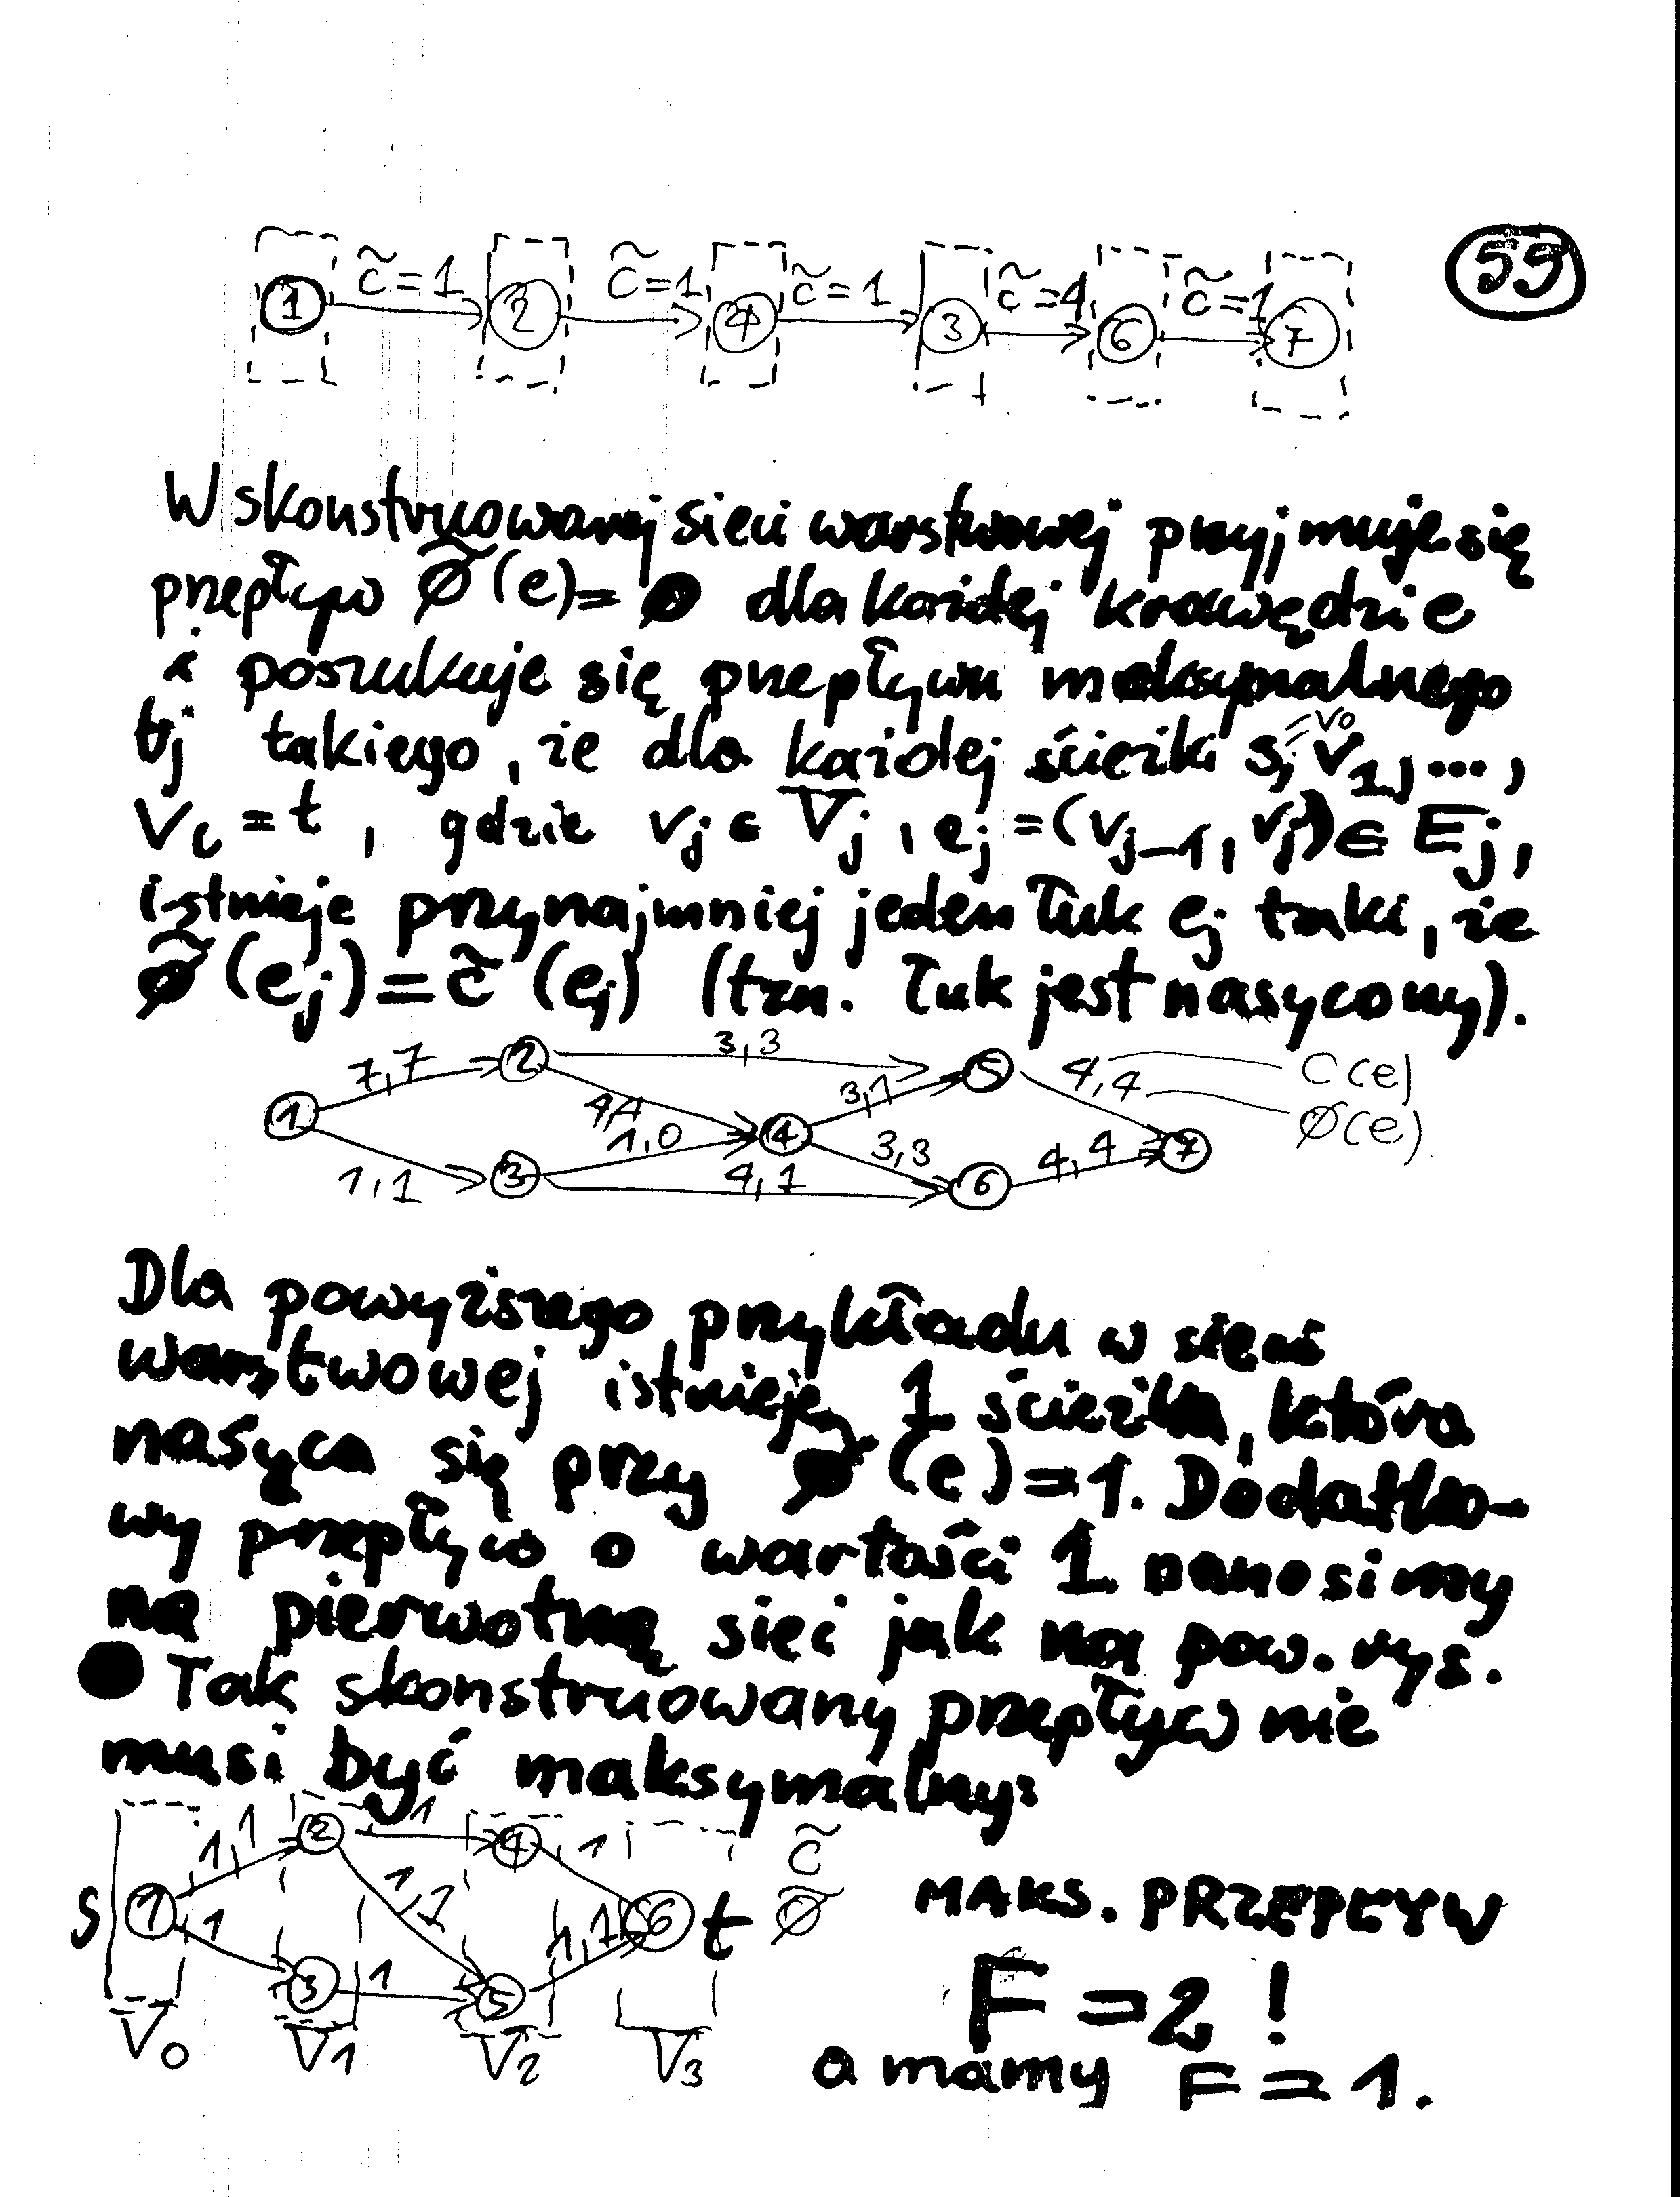 59
c̃=1 c̃=1 c̃=1 c̃=4 c̃=1
1 2 4 3 6 7
W skonstruowanej sieci warstwowej przyjmuje się
przepływ ϕ̃(e)=0 dla każdej krawędzi e
i poszukuje się przepływu maksymalnego
tj takiego, że dla każdej ścieżki s=v₀, v₁, ...,
v_l = t, gdzie v_j ∈ V_j, e_j = (v_{j-1}, v_j) ∈ E_j,
istnieje przynajmniej jeden łuk e_j taki, że
ϕ̃(e_j) = c̃(e_j) (tzn. łuk jest nasycony).
7,7 2 3,3 5 4,4 c(e)
1 4,4 3,1 ϕ(e)
1,0 4 3,3 4,4 7
1,1 3 4,1 6
Dla powyższego przykładu w sieci
warstwowej istnieje 1 ścieżka, która
nasyca się przy ϕ̃(e)=1. Dodatko-
wy przepływ o wartości 1 nanosimy
na pierwotną sieć jak na pow. rys.
Tak skonstruowany przepływ nie
musi być maksymalny:
1,1 2 1 4 1 c̃
s 1 1,1 6 t ϕ̃
1 3 1 5 1,1
V₀ V₁ V₂ V₃
MAKS. PRZEPŁYW
F=2!
a mamy F=1.